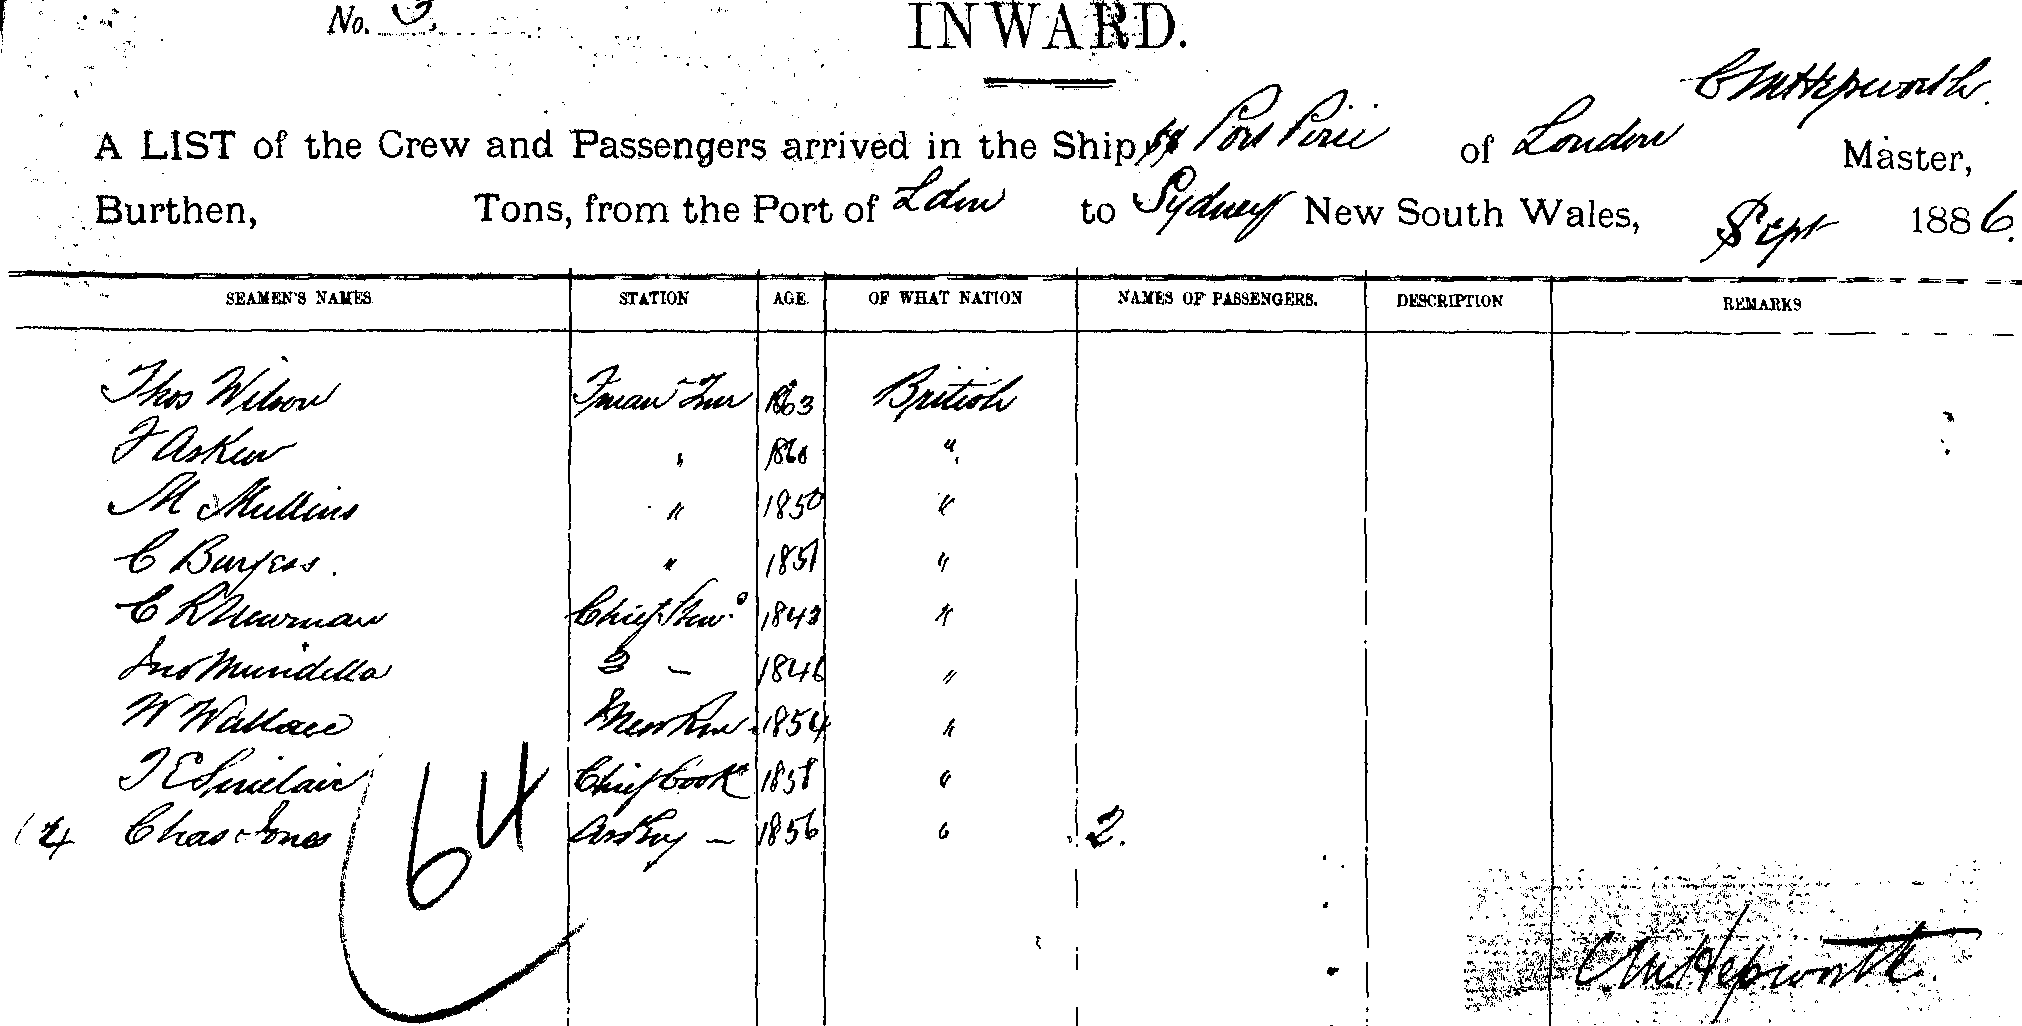 No. 3.
INWARD.
C M Hepworth
A LIST of the Crew and Passengers arrived in the Ship SS Port Pirie of London Master,
Burthen, Tons, from the Port of Ldon to Sydney New South Wales, Sept 1886.
SEAMEN'S NAMES STATION AGE. OF WHAT NATION NAMES OF PASSENGERS. DESCRIPTION REMARKS
Thos Wilson Fman Tmr 1863 British
F Askew " 1860 "
M Mullins " 1850 "
C Burgess. " 1851 "
C R Newman Chief Stwd 1842 "
Jno Mundella 3 - 1846 "
W Wallace Messrm 1854 "
T E Sinclair Chief Cook 1858 "
Chas Jones - 1856 " 2.
64
C M Hepworth